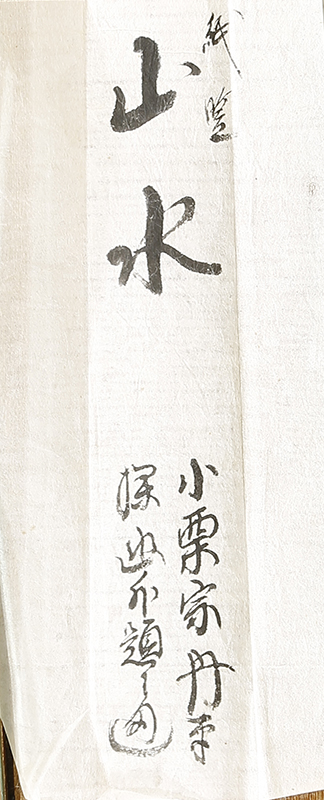 紙竪
山水
小栗宗丹筆
探幽外題